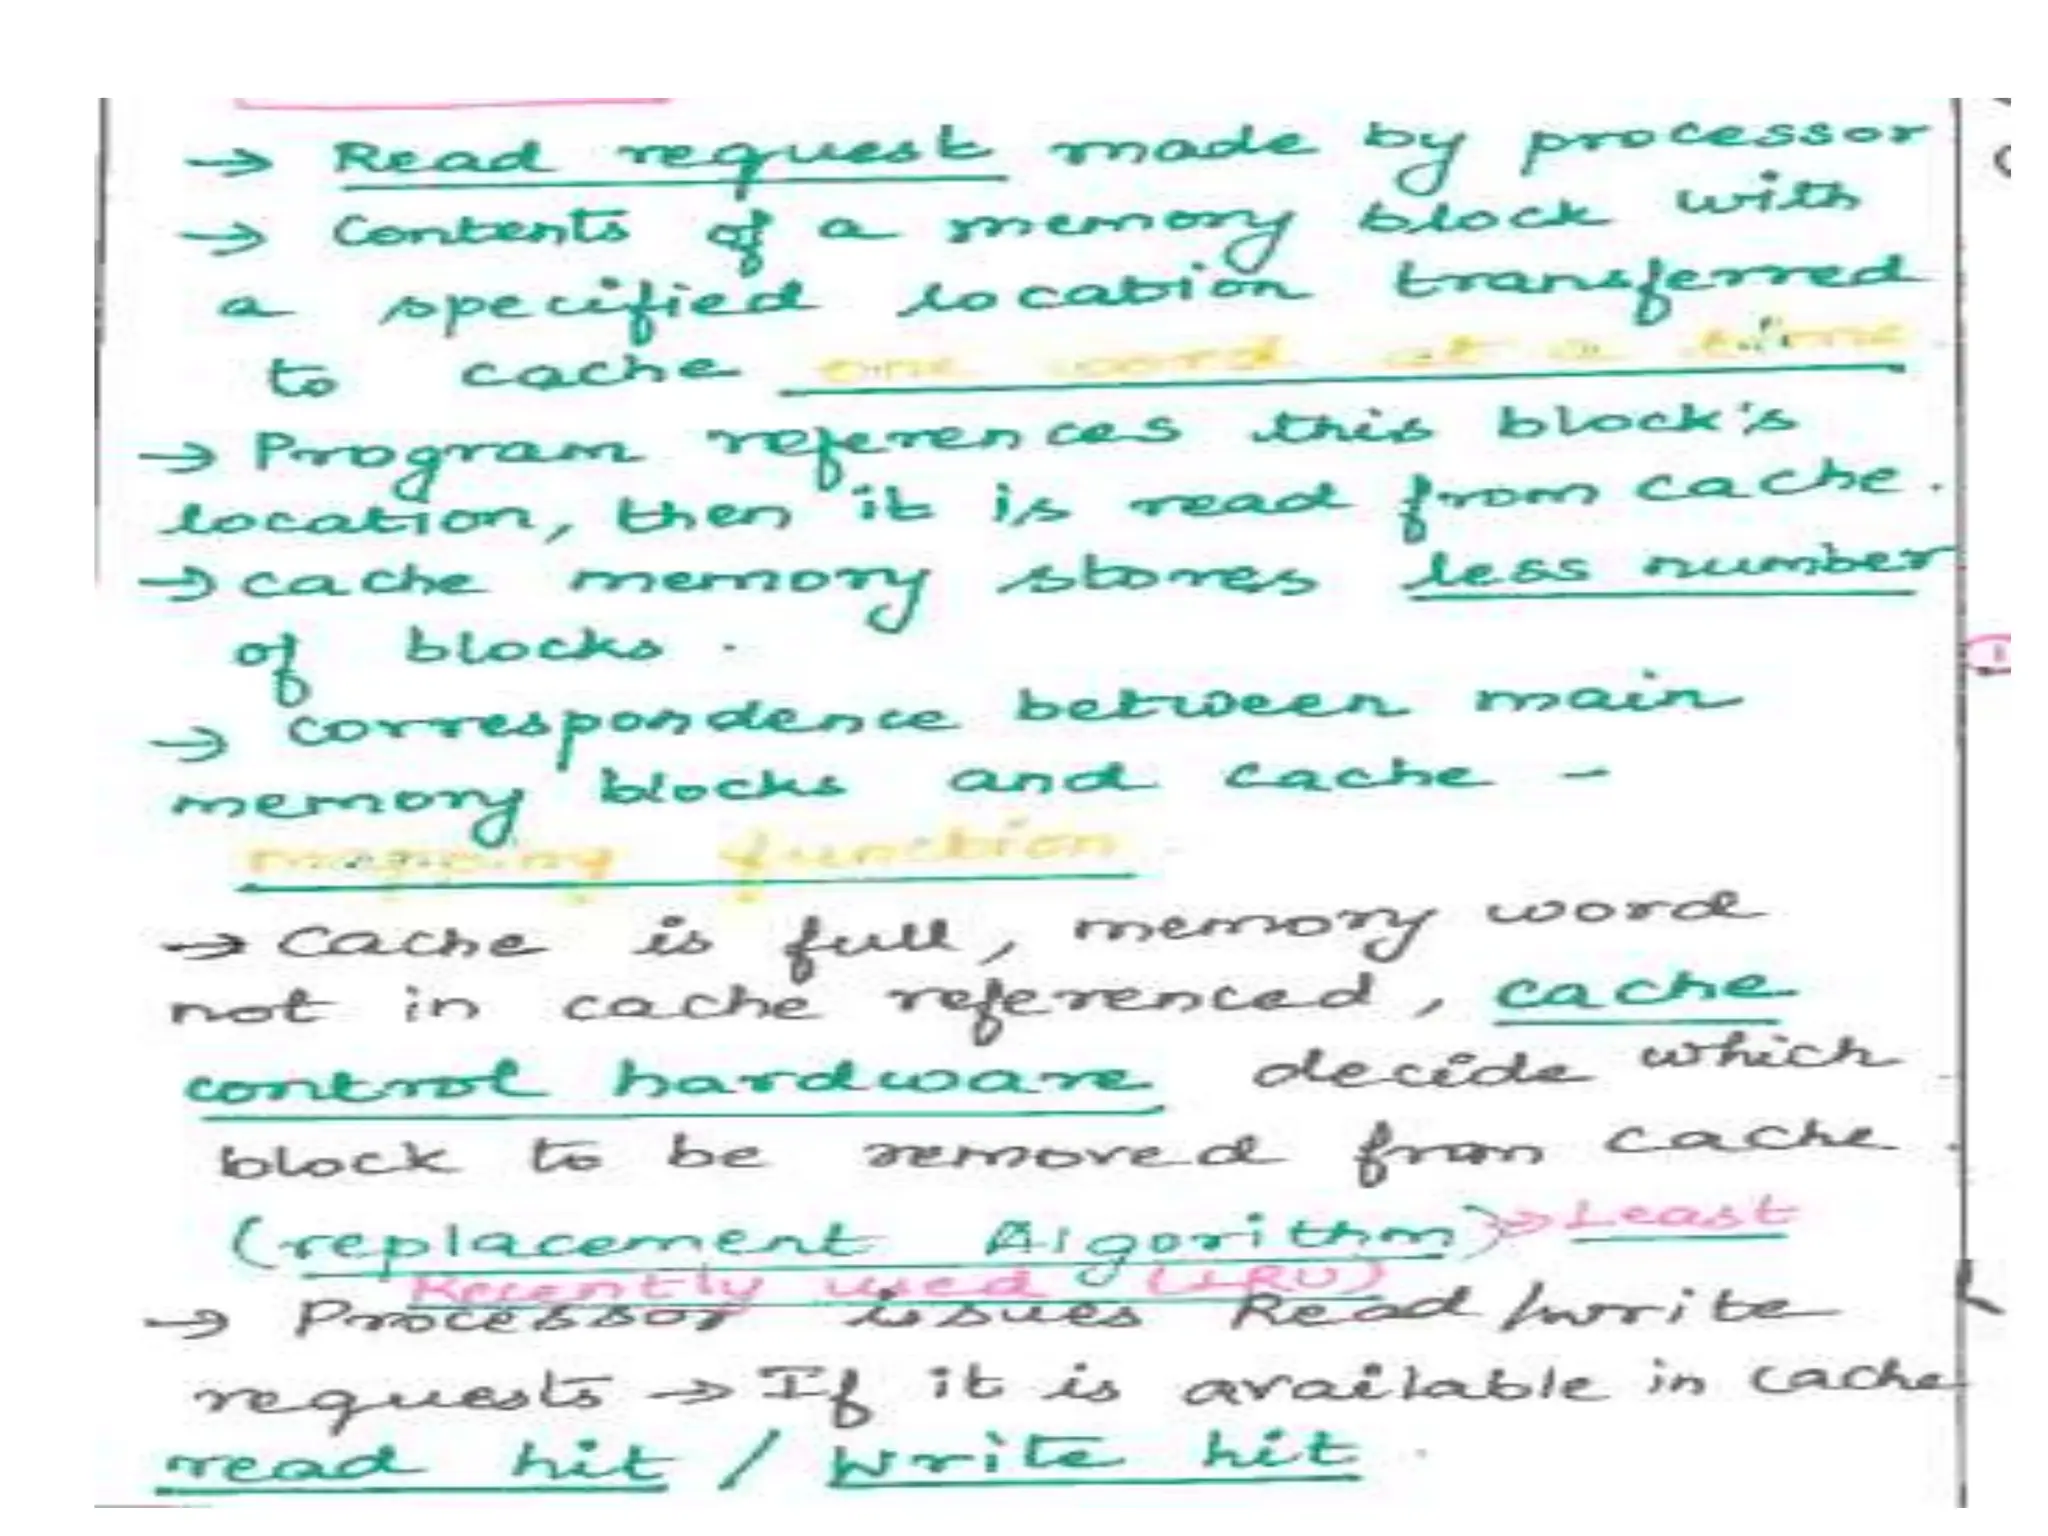 → Read request made by processor
→ Contents of a memory block with
a specified location transferred
to cache one word at a time
→ Program references this block's
location, then it is read from cache.
→ cache memory stores less number
of blocks.
→ correspondence between main
memory blocks and cache -
mapping function
→ Cache is full, memory word
not in cache referenced, cache
control hardware decide which
block to be removed from cache.
(replacement Algorithm) → Least
Recently used (LRU)
→ Processor issues Read/write
requests → If it is available in cache
read hit / Write hit.